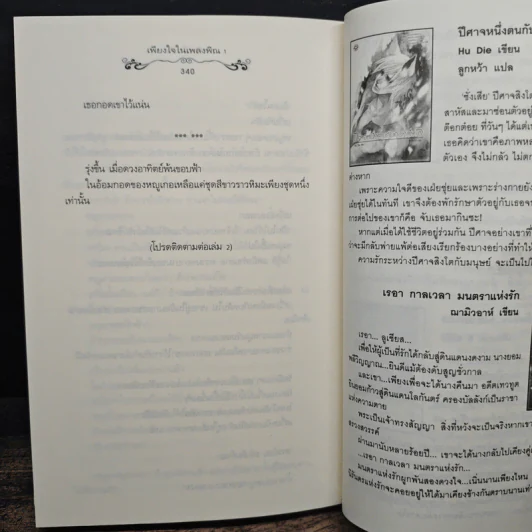 เพียงใจในเพลงพิณ 1
340
เธอกอดเขาไว้แน่น
*** ***
รุ่งขึ้น เมื่อดวงอาทิตย์พ้นขอบฟ้า
ในอ้อมกอดของหญูเกอเหลือแต่ชุดสีขาวราวหิมะเพียงชุดหนึ่ง
เท่านั้น
(โปรดติดตามต่อเล่ม 2)
ปีศาจหนึ่งตนกับ
Hu Die เขียน
ลูกหว้า แปล
ปีศาจสิงโต
สาหัสและมาซ่อนตัวอยู่
ต๊อกต๋อย ที่วันๆ ได้แต่
เธอคิดว่าเขาคือภาพหล
ตัวเอง จึงไม่กลัว ไม่ตก
ล่างหาก
เพราะความใจดีของเฝ่ยซุ่ยและเพราะร่างกายยัง
เฝ่ยซุ่ยได้ในทันที เขาจึงต้องพักรักษาตัวอยู่กับเธอจน
การต่อไปของเขาก็คือ จับเธอมากินซะ!
หากแต่เมื่อได้ใช้ชีวิตอยู่ร่วมกัน ปีศาจอย่างเขาที่
ว่าจะมีกลับพ่ายแพ้ต่อเสียงเรียกร้องบางอย่างที่ทำให้
ความรักระหว่างปีศาจสิงโตกับมนุษย์ จะเป็นไปใ
เรอา กาลเวลา มนตราแห่งรัก
ฌามิวอาห์ เขียน
เรอา... ลูเซียส...
เพื่อให้ผู้เป็นที่รักได้กลับสู่ดินแดนงดงาม นางยอม
พลีวิญญาณ...ยินดีแม้ต้องดับสูญชั่วกาล
และเขา...เพียงเพื่อจะได้นางคืนมา อดีตเทวทูต
จึงยอมก้าวสู่ดินแดนโลกันตร์ ครองบัลลังก์เป็นราชา
แห่งความตาย
พระเป็นเจ้าทรงสัญญา สิ่งที่หวังจะเป็นจริงหากเขา
สรวงสวรรค์
ผ่านมานับหลายร้อยปี... เขาจะได้นางกลับไปเคียงคู่
...เรอา กาลเวลา มนตราแห่งรัก...
มนตราแห่งรักผูกพันสองดวงใจ...เนิ่นนานเพียงไหน
นิรันดร์แห่งรักจะคอยอยู่ให้ได้มาเคียงข้างกันตราบนานเท่า